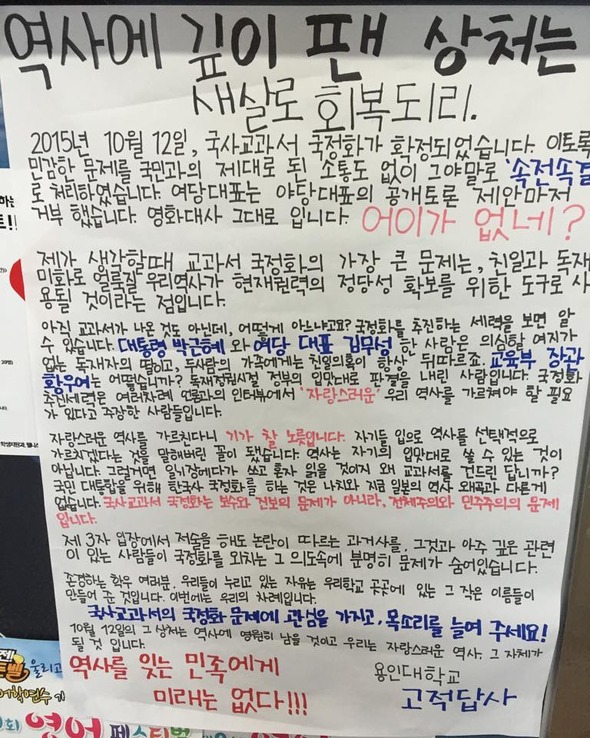 역사에 깊이 팬 상처는
새살로 회복되리.
2015년 10월 12일, 국사교과서 국정화가 확정되었습니다. 이토록
민감한 문제를 국민과의 제대로 된 소통도 없이 그야말로 '속전속결
로 처리하였습니다. 여당대표는 야당대표의 공개토론 제안마저
거부 했습니다. 영화대사 그대로 입니다. 어이가 없네?
제가 생각할때 교과서 국정화의 가장 큰 문제는, 친일과 독재
미화로 얼룩질 우리역사가 현재권력의 정당성 확보를 위한 도구로 사
용될 것이라는 점입니다.
아직 교과서가 나온 것도 아닌데, 어떻게 아느냐고? 국정화를 추진하는 세력을 보면 알
수 있습니다. 대통령 박근혜 와 여당 대표 김무성 한 사람은 의심할 여지가
없는 독재자의 딸이고, 두사람의 가족에게는 친일의혹이 항상 뒤따르죠. 교육부 장관
황우여는 어떻습니까? 독재정권시절 정부의 입맛대로 판결을 내린 사람입니다. 국정화
추진세력은 여러차례 언론과의 인터뷰에서 '자랑스러운' 우리 역사를 가르쳐야 할 필요
가 있다고 주장한 사람들입니다.
자랑스러운 역사를 가르친다니 기가 찰 노릇입니다. 자기들 입으로 역사를 선택적으로
가르치겠다는 것을 말해버린 꼴이 됐습니다. 역사는 자기의 입맛대로 쓸 수 있는 것이
아닙니다. 그럴거면 일기장에다가 쓰고 혼자 읽을 것이지 왜 교과서를 건드린 답니까?
국민 대통합을 위해 한국사 국정화를 하는 것은 나치와 지금 일본의 역사 왜곡과 다른게
없습니다. 국사교과서 국정화는 보수와 진보의 문제가 아니라, 전체주의와 민주주의의 문제
입니다.
제 3자 입장에서 저술을 해도 논란이 따르는 과거사를, 그것과 아주 깊은 관련
이 있는 사람들이 국정화를 외치는 그 의도속에 분명히 문제가 숨어있습니다.
존경하는 학우 여러분, 우리들이 누리고 있는 자유는 우리학교 곳곳에 있는 그 작은 이름들이
만들어 준 것입니다. 이번에는 우리의 차례입니다.
국사교과서의 국정화 문제에 관심을 가지고, 목소리를 높여 주세요!
10월 12일의 그 상처는 역사에 영원히 남을 것이고 우리는 자랑스러운 역사, 그 자체가
될 것 입니다.
역사를 잊는 민족에게
미래는 없다!!!
용인대학교
고적답사
울리고
어학연수
영어 페스티벌